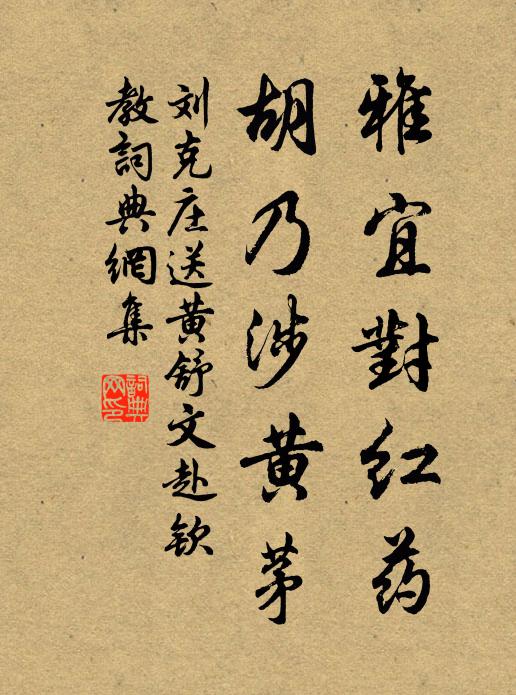 雅宜對红药
胡乃涉黄茅
刘克庄送黄舒文赴钦
教詞典網集
詞典网印